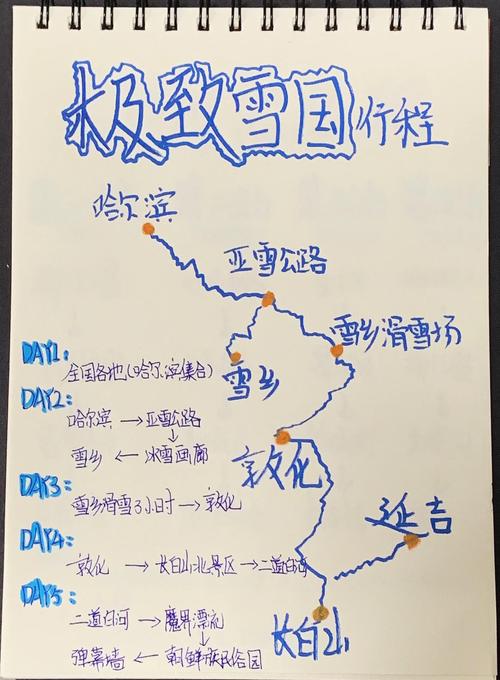 极致雪国行程
哈尔滨
亚雪公路
雪乡滑雪场
雪乡
敦化
延吉
长白山
DAY1:
全国各地(哈尔滨集合)
DAY2:
哈尔滨→亚雪公路
↓
雪乡←冰雪画廊
DAY3:
雪乡滑雪3小时→敦化
DAY4:
敦化→长白山北景区→二道白河
DAY5:
二道白河→魔界漂流
↓
弹幕墙←朝鲜族民俗园